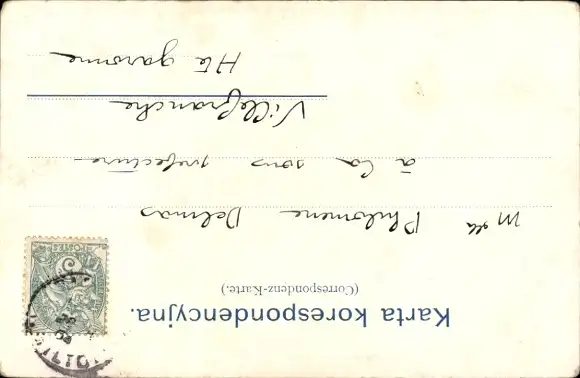 Karta korespondencyjna.
(Correspondenz-Karte.)
Mlle Philomene Delmas
à la sous prefecture
Villefranche
Hte garonne
POSTES
5